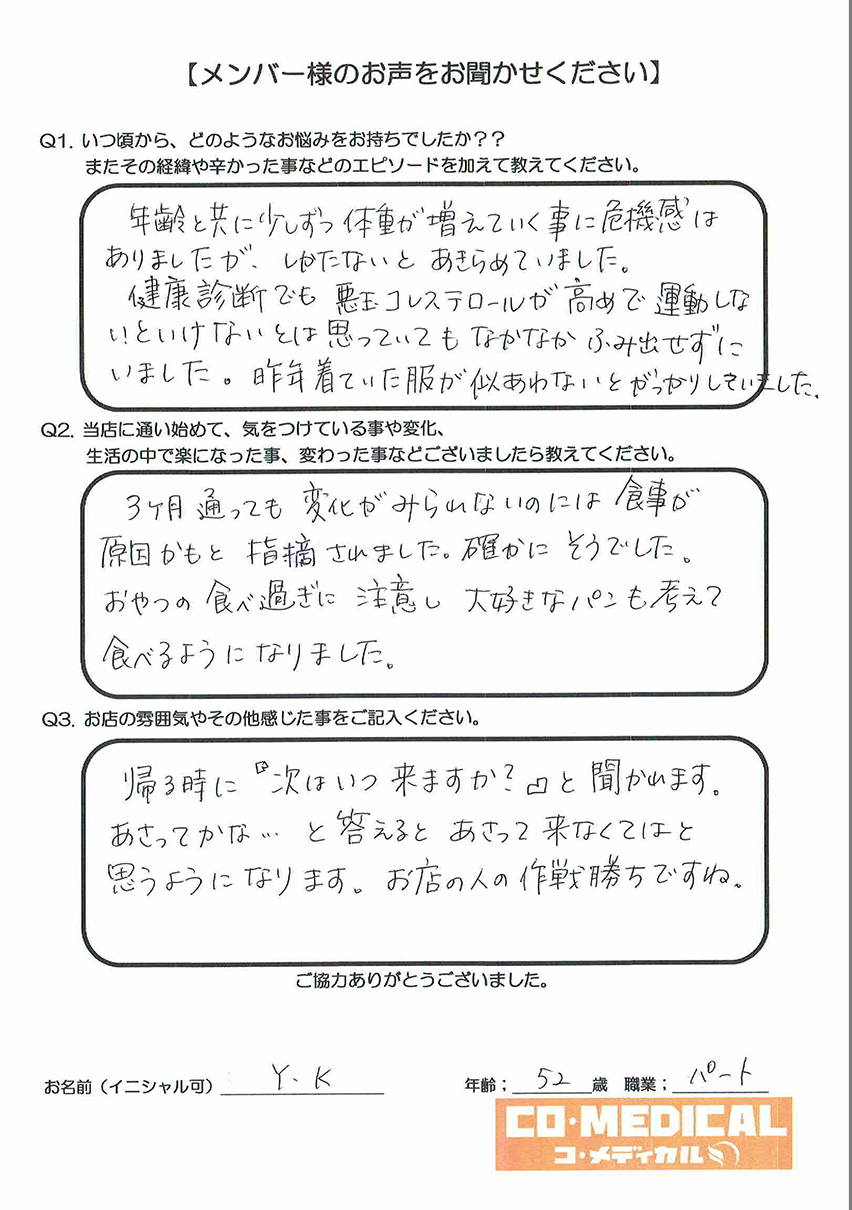 【メンバー様のお声をお聞かせください】
Q1. いつ頃から、どのようなお悩みをお持ちでしたか？？
またその経緯や辛かった事などのエピソードを加えて教えてください。
年齢と共に少しずつ体重が増えていく事に危機感は
ありましたが、しかたないとあきらめていました。
健康診断でも悪玉コレステロールが高めで運動しな
いといけないとは思っていてもなかなかふみ出せずに
いました。昨年着ていた服が似あわないとがっかりしていました。
Q2. 当店に通い始めて、気をつけている事や変化、
生活の中で楽になった事、変わった事などございましたら教えてください。
3ヶ月通っても変化がみられないのには食事が
原因かもと指摘されました。確かにそうでした。
おやつの食べ過ぎに注意し大好きなパンも考えて
食べるようになりました。
Q3. お店の雰囲気やその他感じた事をご記入ください。
帰る時に『次はいつ来ますか?』と聞かれます。
あさってかな…と答えるとあさって来なくてはと
思うようになります。お店の人の作戦勝ちですね。
ご協力ありがとうございました。
お名前（イニシャル可） Y.K 年齢； 52 歳 職業； パート
CO・MEDICAL
コ・メディカル